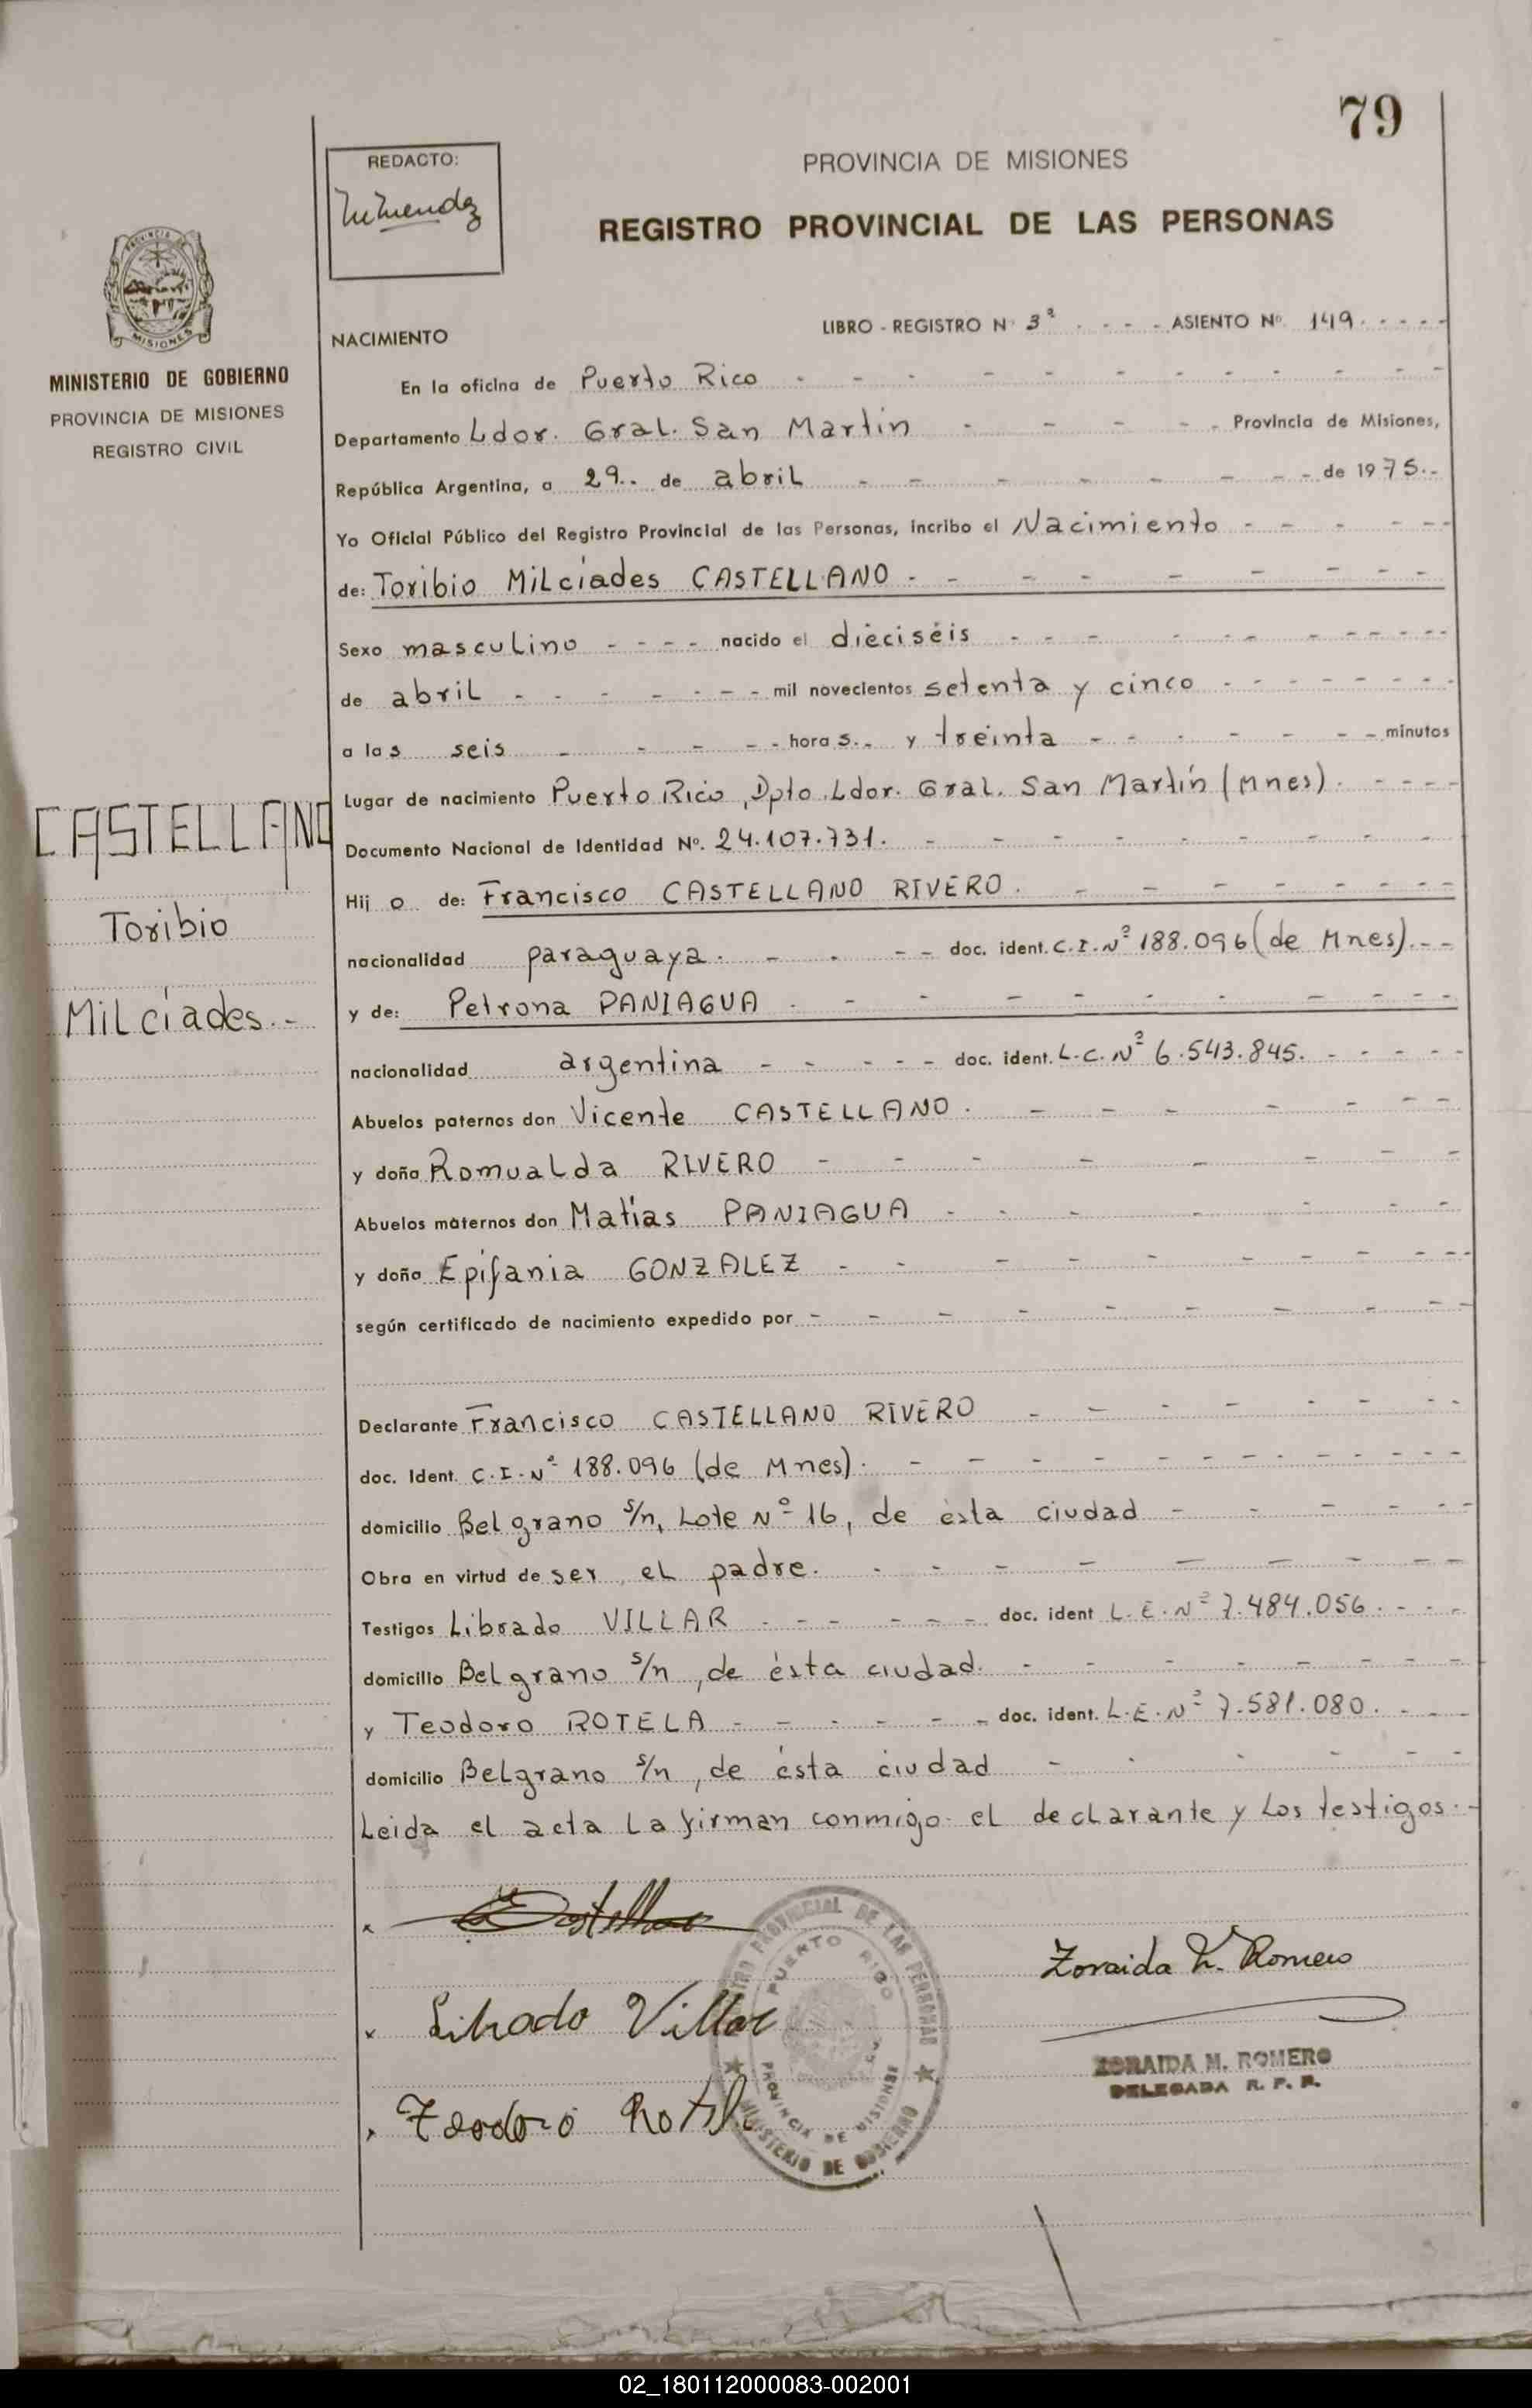 79
REDACTO:
PROVINCIA DE MISIONES
REGISTRO PROVINCIAL DE LAS PERSONAS
MISIONES
MINISTERIO DE GOBIERNO
PROVINCIA DE MISIONES
REGISTRO CIVIL
NACIMIENTO LIBRO - REGISTRO Nº 3º - - - ASIENTO Nº 149 - - - -
En la oficina de Puerto Rico - - - - - - - - - -
Departamento Ldor. Gral. San Martín - - - - Provincia de Misiones,
República Argentina, a 29.. de abril - - - - - - - de 1975.-
Yo Oficial Público del Registro Provincial de las Personas, incribo el Nacimiento - - - - -
de: Toribio Milcíades CASTELLANO - - - - - - - - -
Sexo masculino - - - - nacido el dieciséis - - - - - - - - - -
de abril - - - - - - - mil novecientos setenta y cinco - - - - - - - -
a las seis - - - - - horas.. y treinta - - - - - - - minutos
Lugar de nacimiento Puerto Rico, Dpto. Ldor. Gral. San Martín (Mnes). - - - -
Documento Nacional de Identidad Nº. 24.107.731. - - - - - - - - -
CASTELLANO
Toribio
Milcíades.-
Hijo de: Francisco CASTELLANO RIVERO. - - - - - - - -
nacionalidad paraguaya. - - - - doc. ident. C.I.Nº 188.096 (de Mnes).- -
y de: Petrona PANIAGUA - - - - - - - - - - -
nacionalidad argentina - - - - - doc. ident. L.C. Nº 6.543.845. - - - - -
Abuelos paternos don Vicente CASTELLANO. - - - - - - -
y doña Romualda RIVERO - - - - - - - -
Abuelos maternos don Matías PANIAGUA - - - - - -
y doña Epifania GONZALEZ - - - - - - - - - -
según certificado de nacimiento expedido por - - - - - - - - - -
Declarante Francisco CASTELLANO RIVERO - - - - - - - -
doc. Ident. C.I.Nº 188.096 (de Mnes). - - - - - - - - - - -
domicilio Belgrano s/n, Lote Nº 16, de ésta ciudad - - - - - -
Obra en virtud de ser el padre. - - - - - - - - - -
Testigos Librado VILLAR - - - - - - - doc. ident L.E.Nº 7.484.056 - - - -
domicilio Belgrano s/n, de ésta ciudad. - - - - - - - -
y Teodoro ROTELA - - - - - - doc. ident. L.E.Nº 7.581.080. - - -
domicilio Belgrano s/n, de ésta ciudad - - - - - -
Leida el acta la firman conmigo el declarante y los testigos.-
Librado Villar
Teodoro Rotela
Zoraida M. Romero
ZORAIDA M. ROMERO
DELEGADA R. P. P.
REGISTRO PROVINCIAL DE LAS PERSONAS
PUERTO RICO
PROVINCIA DE MISIONES
MINISTERIO DE GOBIERNO
02_180112000083-002001